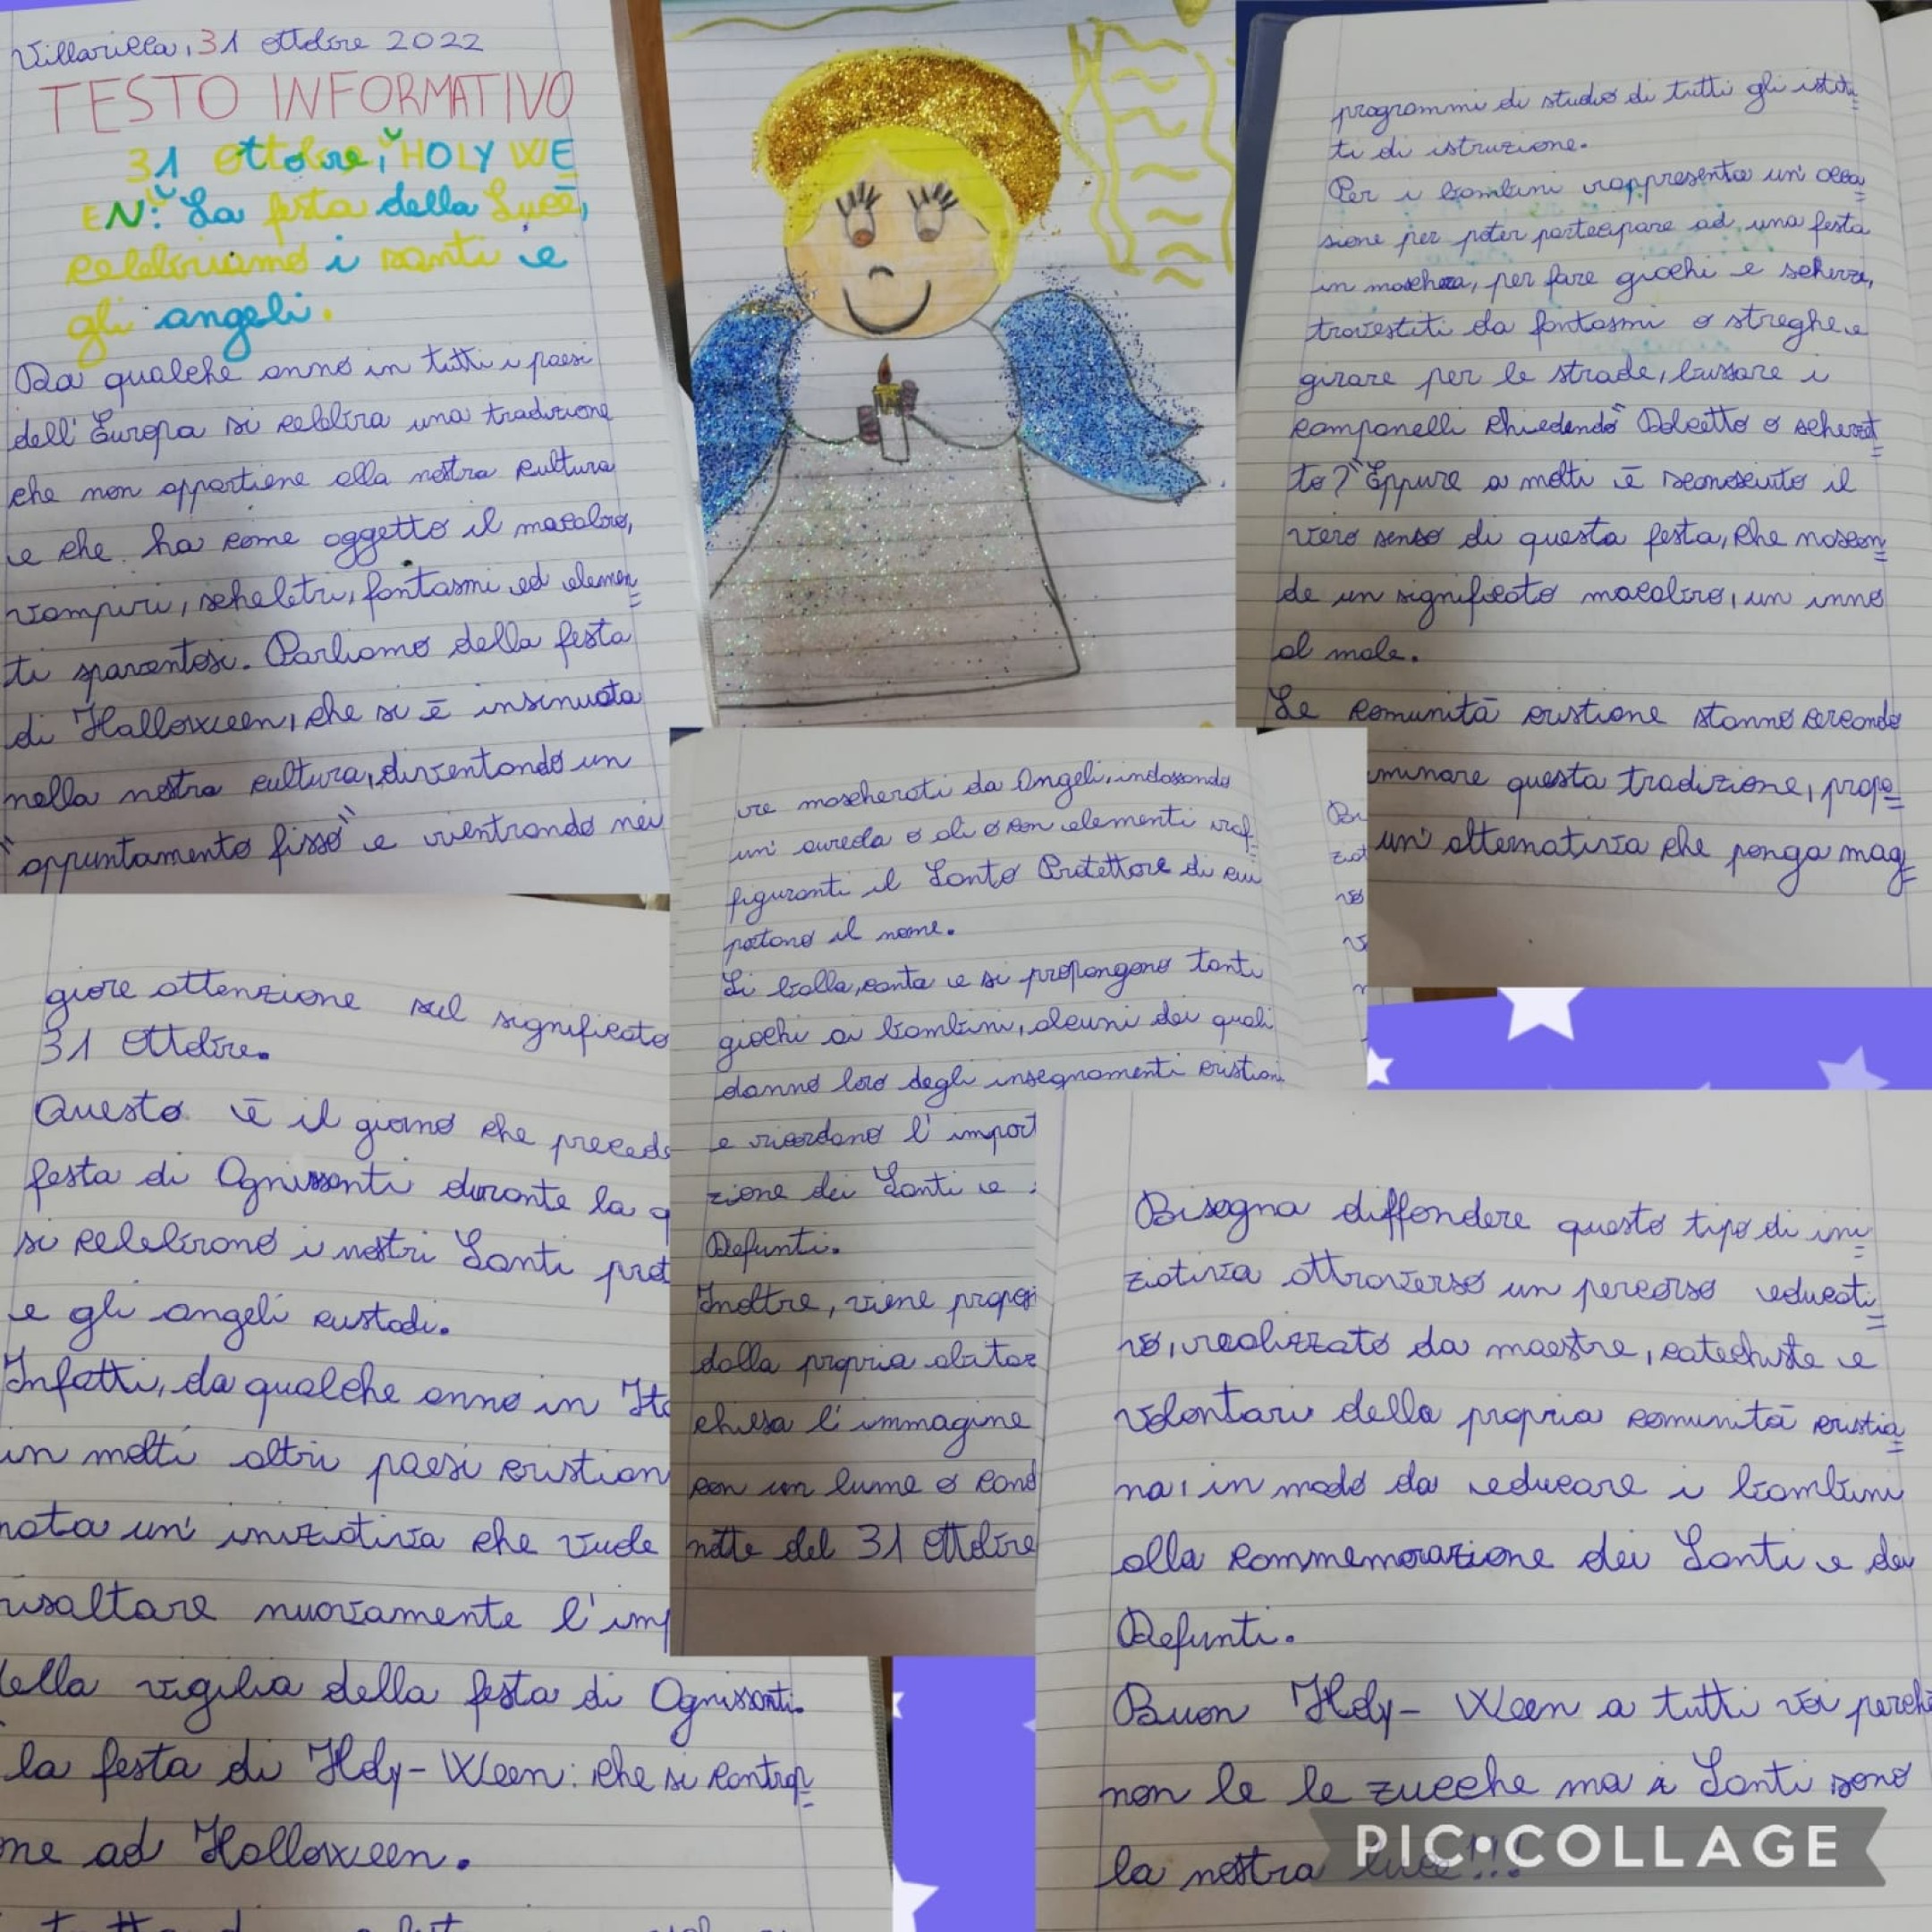 Villaricca, 31 Ottobre 2022
TESTO INFORMATIVO
31 Ottobre, "HOLY WE
EN": La festa della Luce,
celebriamo i santi e
gli angeli.
Da qualche anno in tutti i paesi
dell'Europa si celebra una tradizione
che non appartiene alla nostra cultura
e che ha come oggetto il macabro,
vampiri, scheletri, fantasmi ed elemen=
ti spaventosi. Parliamo della festa
di Halloween, che si è insinuata
nella nostra cultura, diventando un
"appuntamento fisso" e rientrando nei
programmi di studio di tutti gli istitu=
ti di istruzione.
Per i bambini rappresenta un'occa=
sione per poter partecipare ad una festa
in maschera, per fare giochi e scherzi,
travestiti da fantasmi o streghe e
girare per le strade, bussare i
campanelli chiedendo "Dolcetto o scherzet=
to?" Eppure a molti è sconosciuto il
vero senso di questa festa, che nascon=
de un significato macabro, un inno
al male.
Le comunità cristiane stanno cercando
minare questa tradizione, propo=
un'alternativa che ponga mag=
giore attenzione sul significato
31 Ottobre.
Questo è il giorno che precede
festa di Ognissanti durante la q
si celebrano i nostri Santi prot
e gli angeli custodi.
Infatti, da qualche anno in Ita
in molti altri paesi cristian
nata un'iniziativa che vude
risaltare nuovamente l'imp
della vigilia della festa di Ognissanti.
la festa di Holy-Ween: che si contrap=
ne ad Halloween.
re mascherati da Angeli, indossando
un'aureola o ali o con elementi raf=
figuranti il Santo Protettore di cui
portano il nome.
Si balla, canta e si propongono tanti
giochi ai bambini, alcuni dei quali
danno loro degli insegnamenti cristian
e ricordano l'import
zione dei Santi e
Defunti.
Inoltre, viene propos
dalla propria abitaz
chiesa l'immagine
con un lume o cand
notte del 31 Ottobre
Bisogna diffondere questo tipo di ini=
ziativa attraverso un percorso educati=
vo, realizzato da maestre, catechiste e
volontari della propria comunità cristia=
na, in modo da educare i bambini
alla commemorazione dei Santi e dei
Defunti.
Buon Holy-Ween a tutti voi perchè
non le le zucche ma i Santi sono
la nostra luce!!!
PIC•COLLAGE